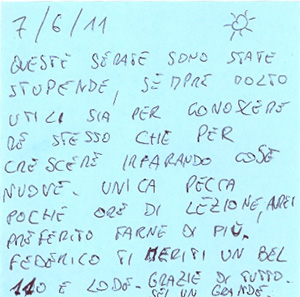 7/6/11
QUESTE SERATE SONO STATE
STUPENDE, SEMPRE MOLTO
UTILI SIA PER CONOSCERE
ME STESSO CHE PER
CRESCERE IMPARANDO COSE
NUOVE. UNICA PECCA
POCHE ORE DI LEZIONE, AREI
PREFERITO FARNE DI PIÙ.
FEDERICO TI MERITI UN BEL
110 E LODE. GRAZIE DI TUTTO.
SEI UN GRANDE.